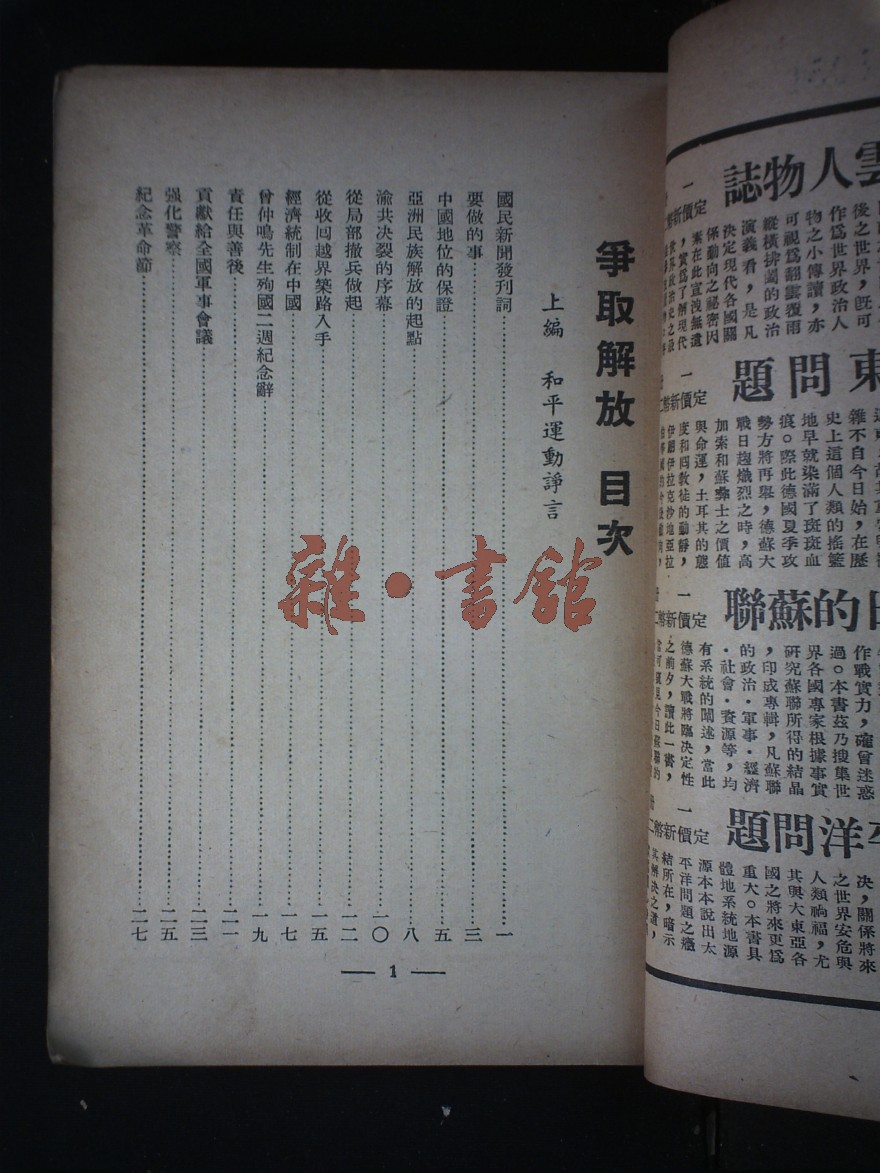 爭取解放 目次
上編 和平運動諍言
國民新聞發刊詞 一
要做的事 三
中國地位的保證 五
亞洲民族解放的起點 八
渝共決裂的序幕 一〇
從局部撤兵做起 一二
從收回越界築路入手 一五
經濟統制在中國 一七
曾仲鳴先生殉國二週紀念辭 一九
責任與善後 二一
貢獻給全國軍事會議 二三
强化警察 二五
紀念革命節 二七
— 1 —
雜·書館
雲人物誌
後之世界,旣可
作爲世界政治人
物之小傳讀,亦
可視爲翻雲覆雨
縱橫捭闔的政治
演義看,是凡
決定現代各國關
係動向之祕密因
素在此宣洩無遺
,實爲了解現代
定價新
東問題
雜不自今日始,在歷
史上這個人類的搖籃
地早就染滿了斑斑血
痕。際此德國夏季攻
勢方將再舉,德蘇大
戰日趨熾烈之時,高
加索和蘇彝士之價值
與命運,土耳其的態
度和回敎徒的動靜,
定價新幣
日的蘇聯
作戰實力,確曾迷惑
過。本書茲乃搜集世
界各國專家根據事實
研究蘇聯所得的結晶
,印成專輯,凡蘇聯
的政治·軍事·經濟
·社會·資源等,均
有系統的闡述,當此
德蘇大戰將臨決定性
之前夕,讀此一書,
定價新幣二
平洋問題
決,關係將來
之世界安危與
人類禍福,尤
其與大東亞各
國之將來更爲
重大。本書具
體地系統地源
源本本說出太
平洋問題之癥
結所在,暗示
其解決之道,
定價新幣二